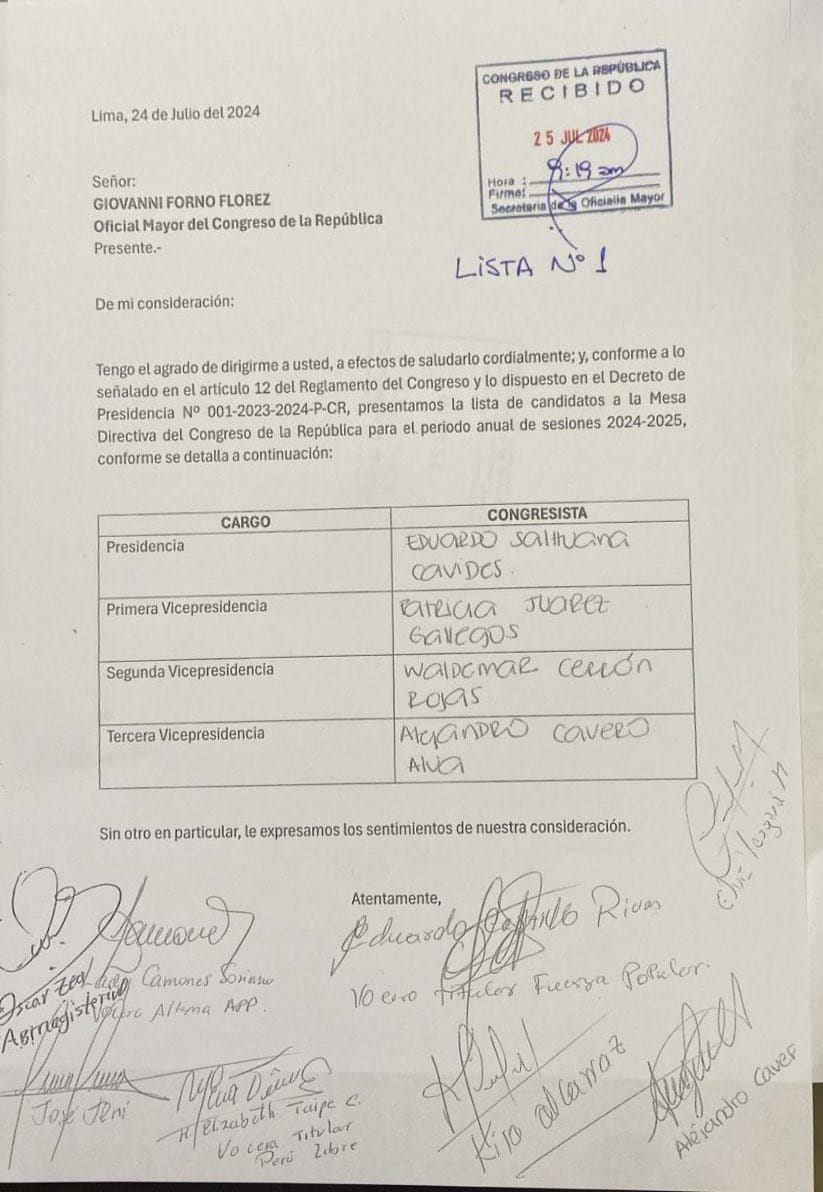 CONGRESO DE LA REPÚBLICA
RECIBIDO
25 JUL 2024
Hora : 8:19 am
Firma:
Secretaria de la Oficialia Mayor
LISTA Nº 1
Lima, 24 de Julio del 2024
Señor:
GIOVANNI FORNO FLOREZ
Oficial Mayor del Congreso de la República
Presente.-
De mi consideración:
Tengo el agrado de dirigirme a usted, a efectos de saludarlo cordialmente; y, conforme a lo
señalado en el artículo 12 del Reglamento del Congreso y lo dispuesto en el Decreto de
Presidencia Nº 001-2023-2024-P-CR, presentamos la lista de candidatos a la Mesa
Directiva del Congreso de la República para el periodo anual de sesiones 2024-2025,
conforme se detalla a continuación:
CARGO CONGRESISTA
Presidencia EDUARDO Salhuana
CAVIDES.
Primera Vicepresidencia Patricia JUAREZ
Gallegos
Segunda Vicepresidencia WALDEMAR Cerrón
ROJAS
Tercera Vicepresidencia Alejandro CAVERO
Alva
Sin otro en particular, le expresamos los sentimientos de nuestra consideración.
Atentamente,
Eduardo Castillo Rivas
Vocero Titular Fuerza Popular.
Lady Camones Soriano
Vocera Alterna APP.
Oscar Zea
José Jerí
Elizabeth Taipe C.
Vocera Titular
Perú Libre
Kira Alcarraz
Alejandro Caver